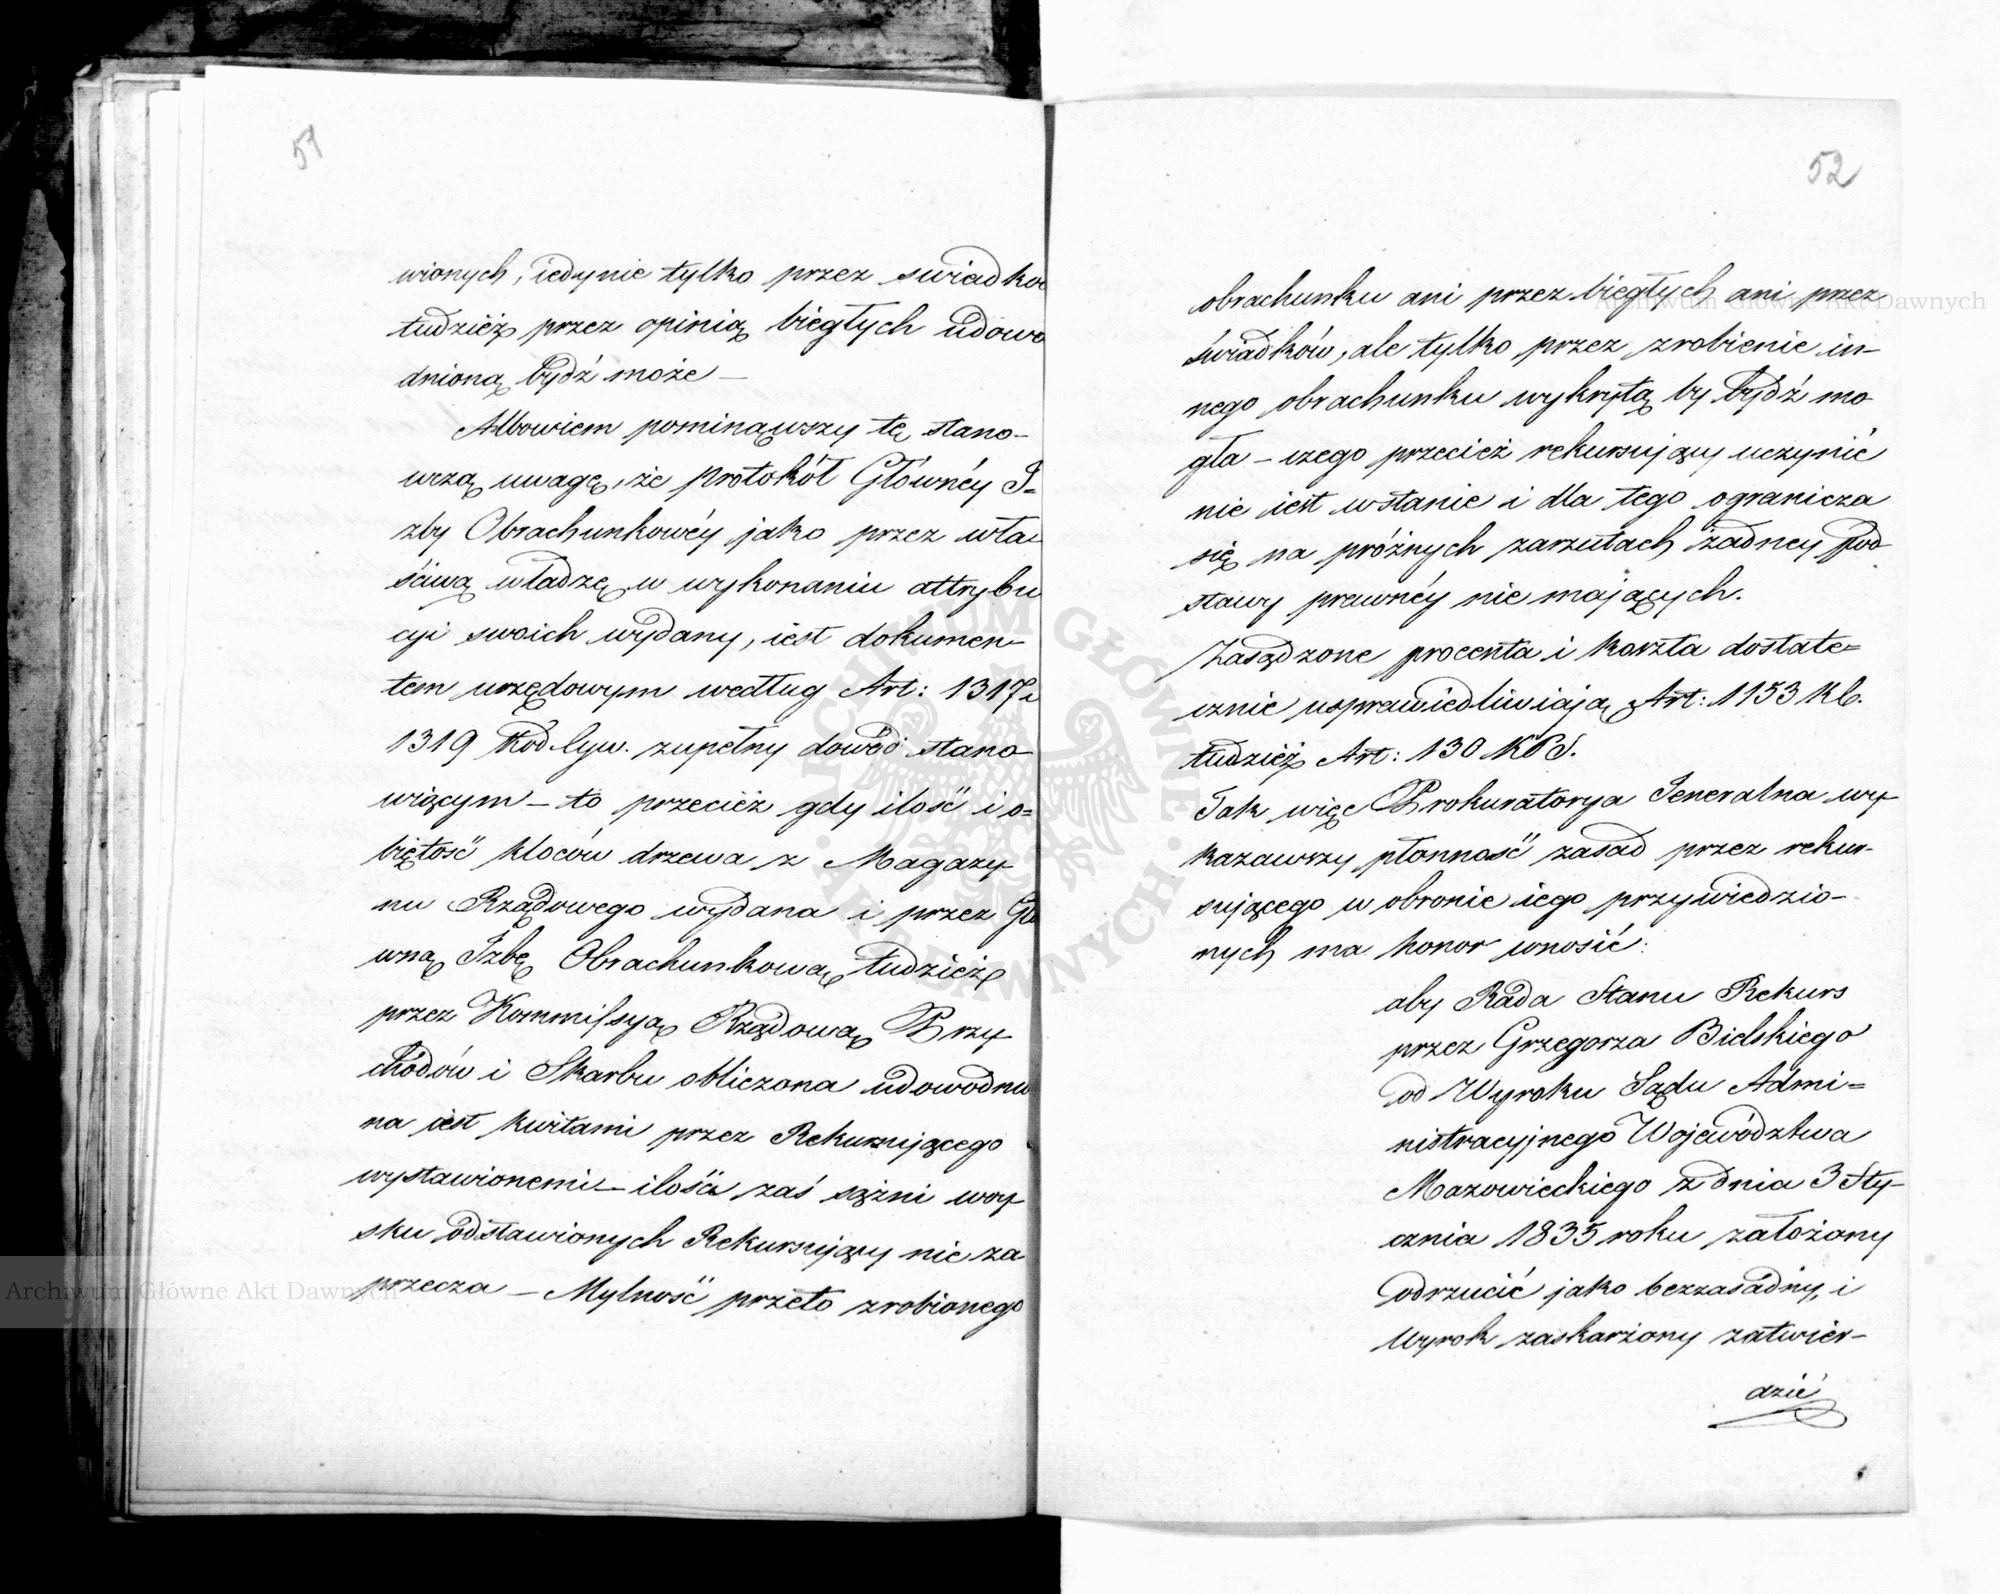 51
wionych, iedynie tylko przez swiadków
tudzież przez opinią biegłych udowo
dnioną bydź może —
Albowiem pominąwszy tę stano-
wczą uwagę, że protokół Głównéy I=
zby Obrachunkowéy jako przez wła
ściwą władzę w wykonaniu attrybu
cyi swoich wydany, iest dokumen-
tem urzędowym według Art: 1317 i
1319 Kod. Cyw. zupełny dowód stano
wiącym — to przecież gdy ilość i o=
biętość kloców drzewa z Magazy
nu Rządowego wydana i przez Głó
wną Izbę Obrachunkową tudzież
przez Kommissyą Rządową Przy
chodów i Skarbu obliczona udowodnio
na iest kwitami przez Rekursującego
wystawionemi — ilości zaś sążni woy
sku odstawionych Rekursujący nie za
przecza — Mylność przeto zrobionego
52
obrachunku ani przez biegłych ani przez
świadków, ale tylko przez zrobienie in-
nego obrachunku wykrytą by bydź mo
gła — czego przecież rekursujący uczynić
nie iest wstanie i dla tego ogranicza
się na próżnych zarzutach żadney pod
stawy prawnéy nie mających.
Zasądzone procenta i koszta dostate=
cznie usprawiedliwiają Art: 1153 KC.
tudzież Art: 130 KPS.
Tak więc Prokuratorya Jeneralna wy
kazawszy płonność zasad przez rekur-
sującego w obronie iego przywiedzio-
nych ma honor wnosić:
aby Rada Stanu Rekurs
przez Grzegorza Bielskiego
od Wyroku Sądu Admi=
nistracyjnego Województwa
Mazowieckiego z dnia 3 Sty-
cznia 1835 roku założony
odrzucić jako bezzasadny, i
Wyrok zaskarżony zatwier-
dzić
Archiwum Główne Akt Dawnych
Archiwum Główne Akt Dawnych
ARCHIWUM GŁÓWNE · AKT DAWNYCH ·